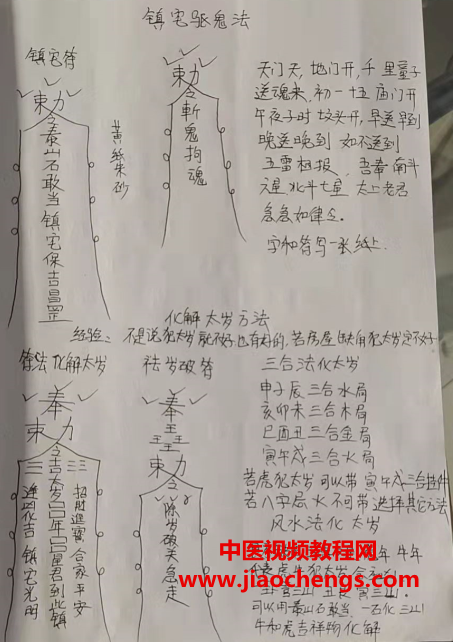 镇宅驱鬼法
镇宅符
敕力
令泰山石敢当镇宅保吉昌罡
黄纸朱砂
敕力
令斩鬼拘魂
天门天,地门开,千里童子
送魂来,初一十五庙门开
午夜子时坟头开,早送早到
晚送晚到 如不送到
五雷相报,吾奉南斗
六星北斗七星 太上老君
急急如律令。
字和符写一张纸上.
化解太岁方法
经验: 不是说犯太岁就不好也有好的,若房屋缺角犯太岁定不好
符法化解太岁
奉
敕力
令吉太岁年星君到此镇
逢凶化吉 镇宅光明
招财进宝 合家平安
祛岁破符
奉
敕力
令除岁破关急走
三合法化太岁
申子辰三合水局
亥卯未三合木局
巳酉丑三合金局
寅午戌三合水局
若虎犯太岁可以带寅午戌三合挂件
若八字忌水不可带选择其它方法
风水法化太岁
年 牛年
可以用泰山石敢当,一石化三山
牛和虎吉祥物化解
中医视频教程网
www.jiaochengs.com